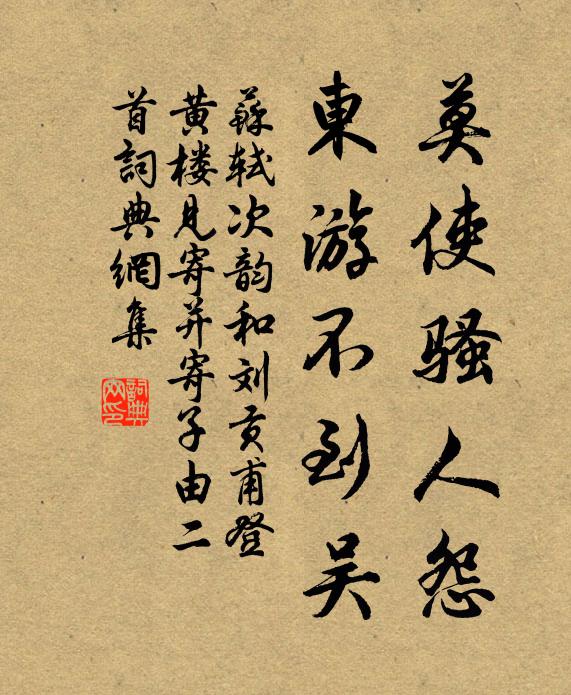 莫使骚人怨
東游不到吴
蘇轼次韵和刘贡甫登
黄楼見寄并寄子由二
首詞典網集
詞典
网印